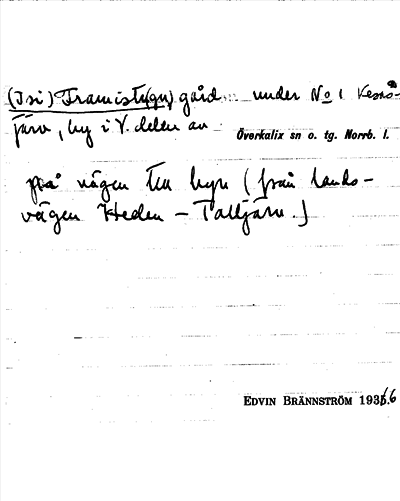 (Isi) Framiste(gu) gård under No 1 Kesä-
järv, by i V. delen av Överkalix sn o. tg. Norrb. l.
på vägen till byn (från lands-
vägen Heden – Talljärv.)
EDVIN BRÄNNSTRÖM 1936.